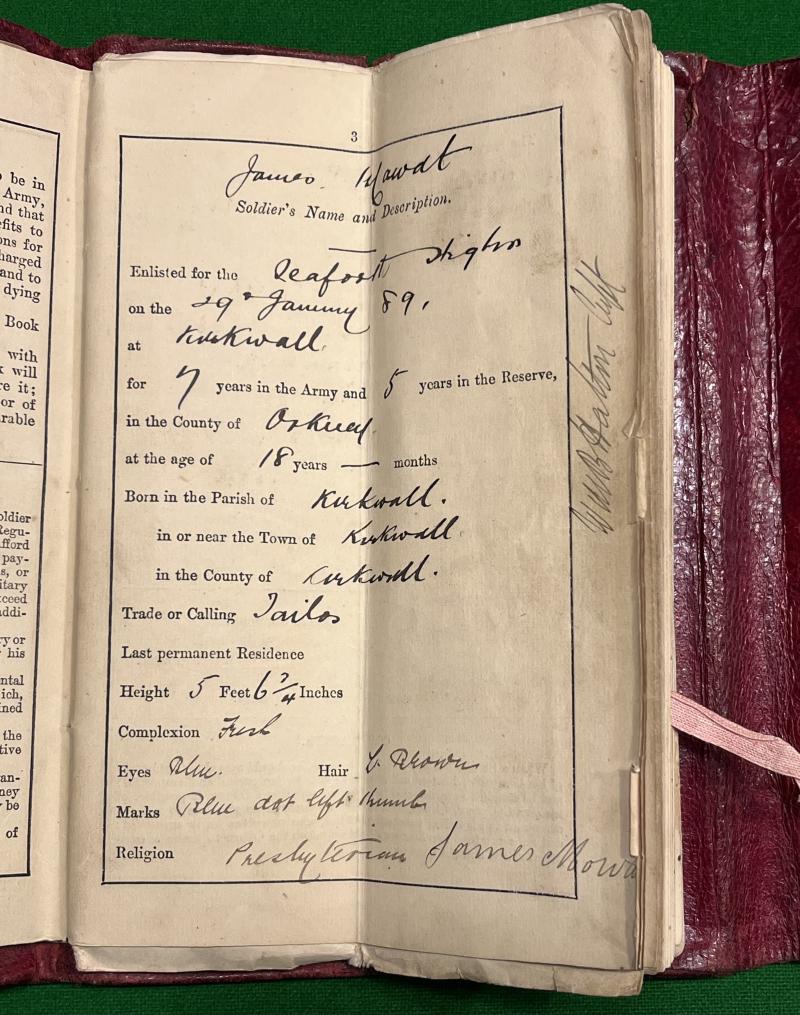 be in
Army,
nd that
fits to
ons for
harged
and to
dying
Book
with
will
re it;
or of
rable
oldier
Regu-
fford
pay-
s, or
itary
xceed
addi-
ry or
his
ntal
ich,
ined
the
tive
an-
ney
be
of
3
James Mowat
Soldier's Name and Description.
Enlisted for the Seaforth Highrs
on the 29 January 89.
at Kirkwall.
for 7 years in the Army and 5 years in the Reserve,
in the County of Orkney
at the age of 18 years — months
Born in the Parish of Kirkwall.
in or near the Town of Kirkwall
in the County of Kirkwall.
Trade or Calling Tailor
Last permanent Residence
Height 5 Feet 6 3/4 Inches
Complexion Fresh
Eyes Blue. Hair L Brown
Marks Blue dot left thumb
Religion Presbyterian James Mowa